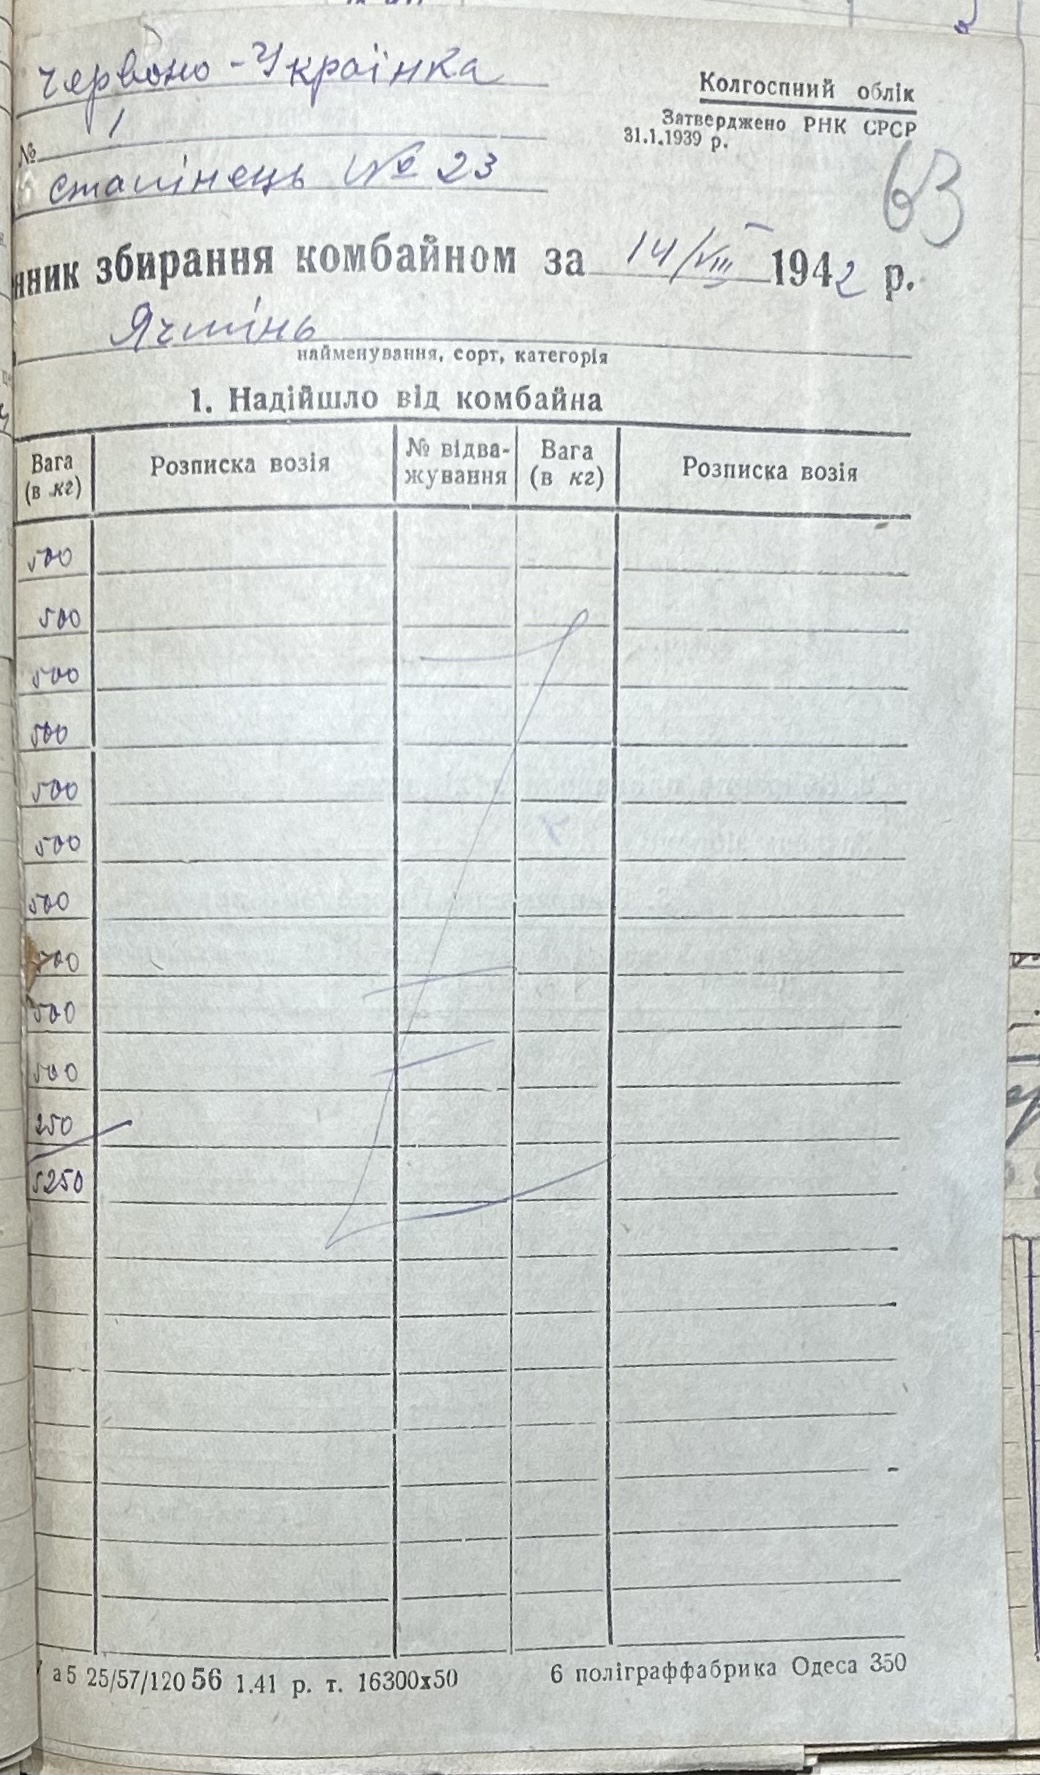 Червоно-Українка
Колгоспний облік
Затверджено РНК СРСР
31.1.1939 р.
№ 1
Сталінець № 23
63
нник збирання комбайном за 14/VIII 1942 р.
Ячмінь
найменування, сорт, категорія
1. Надійшло від комбайна
Вага (в кг) Розписка возія № відва-жування Вага (в кг) Розписка возія
500
500
500
500
500
500
500
500
500
500
250
5250
а5 25/57/120 56 1.41 р. т. 16300х50 6 поліграффабрика Одеса 350